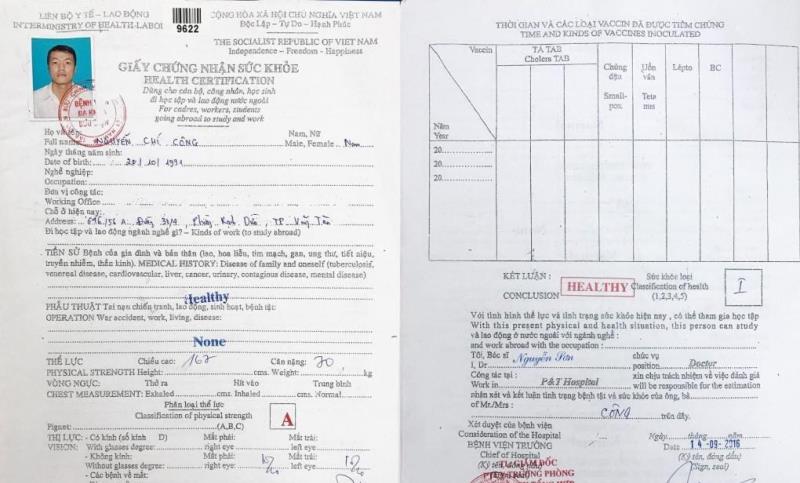 LIÊN BỘ Y TẾ – LAO ĐỘNG
INTERMINISTRY OF HEALTH-LABOR
9622
CỘNG HÒA XÃ HỘI CHỦ NGHĨA VIỆT NAM
Độc Lập – Tự Do – Hạnh Phúc
THE SOCIALIST REPUBLIC OF VIET NAM
Independence – Freedom – Happiness
GIẤY CHỨNG NHẬN SỨC KHỎE
HEALTH CERTIFICATION
Dùng cho cán bộ, công nhân, học sinh
đi học tập và lao động nước ngoài
For cadres, workers, students
going abroad to study and work
BỆNH
ĐA K
Họ và tên: Nam, Nữ
Full name: NGUYỄN CHÍ CÔNG Male, Female Nam
Ngày tháng năm sinh:
Date of birth: 28/10/1991
Nghề nghiệp:
Occupation:
Đơn vị công tác:
Working Office
Chỗ ở hiện nay:
Address: A TP
Đi học tập và lao động ngành nghề gì? – Kinds of work (to study abroad)
TIỀN SỬ Bệnh của gia đình và bản thân (lao, hoa liễu, tim mạch, gan, ung thư, tiết niệu,
truyền nhiễm, thần kinh). MEDICAL HISTORY: Disease of family and oneself (tuberculosis,
venereal disease, cardiovascular, liver, cancer, urinary, contagious disease, mental disease)
Healthy
PHẪU THUẬT Tai nạn chiến tranh, lao động, sinh hoạt, bệnh tật:
OPERATION War accident, work, living, disease:
None
THỂ LỰC Chiều cao: 167 Cân nặng: 70
PHYSICAL STRENGTH Height: cms. Weight: kg
VÒNG NGỰC: Thở ra Hít vào Trung bình
CHEST MEASUREMENT: Exhaled cms. Inhaled cms. Normal
Phân loại thể lực
Classification of physical strength A
Pignet: (A,B,C)
THỊ LỰC: - Có kính (số kính D) Mắt phải: Mắt trái:
VISION: With glasses degree: right eye: left eye
- Không kính: Mắt phải: Mắt trái:
Without glasses degree: right eye: 10/10 left eye 10/10
- Các bệnh về mắt:
THỜI GIAN VÀ CÁC LOẠI VACCIN ĐÃ ĐƯỢC TIÊM CHỦNG
TIME AND KINDS OF VACCINES INOCULATED
Vaccin TẢ TAB Chủng đậu Uốn ván Lépto BC
Cholera TAB Small-pox Teta mes
Năm
Year
20
20
20
KẾT LUẬN: HEALTHY Sức khỏe loại I
CONCLUSION Classification of health
(1,2,3,4,5)
Với tình hình thể lực và tình trạng sức khỏe hiện nay, có thể tham gia học tập
With this present physical and health situation, this person can study
và lao động ở nước ngoài với ngành nghề:
and work abroad with the occupation:
Tôi, Bác sĩ Nguyễn chức vụ
I, Dr position Doctor
Công tác tại: xin chịu trách nhiệm về việc đánh giá
Work in P&T Hospital will be responsible for the estimation
nhận xét và kết luận tình trạng bệnh tật và sức khỏe của ông, bà
of Mr./Mrs:
CÔNG trên đây.
Xét duyệt của bệnh viện
Consideration of the Hospital Ngày tháng năm
BỆNH VIỆN TRƯỞNG Date 14-09-2016
Chief of Hospital (Ký tên, đóng dấu)
(Ký tên, đóng dấu) (Sign, seal)
GIÁM ĐỐC
TRƯỞNG PHÒNG